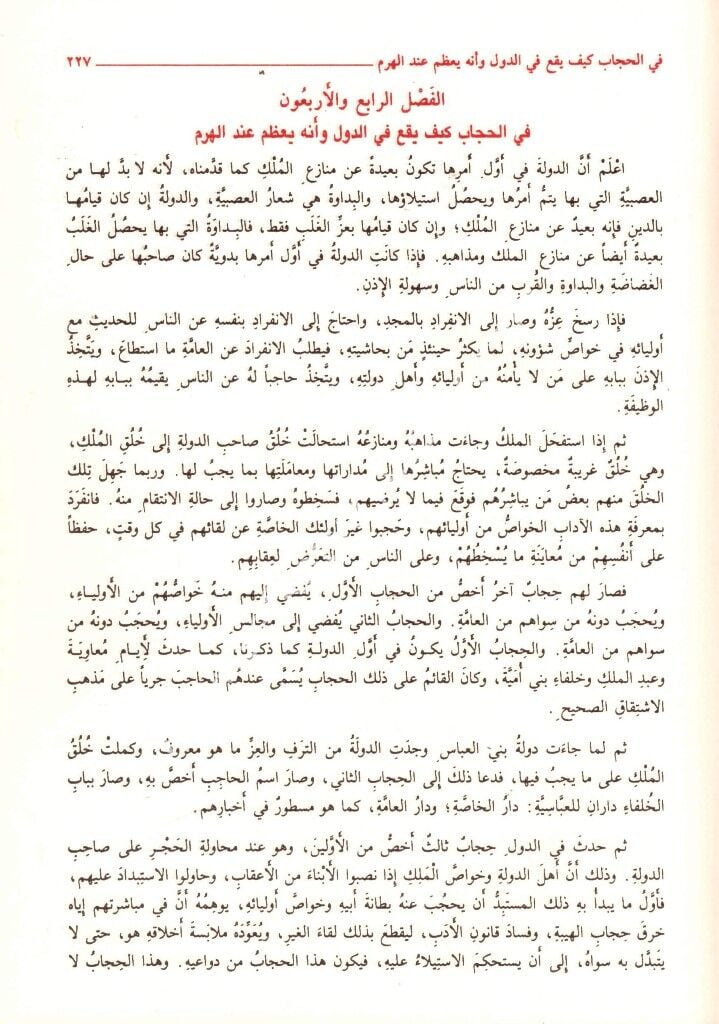 في الحجاب كيف يقع في الدول وأنه يعظم عند الهرم ــــــــــــــــــــــــــــــــــــــــــــــــــــ ٢٢٧
الفَصْل الرابع والأَربعُون
في الحجاب كيف يقع في الدول وأَنه يعظم عند الهرم
اعْلَمْ أَنَّ الدولةَ في أَوَّلِ أَمرِها تكونُ بعيدةً عن منازعِ المُلْكِ كما قدَّمناه، لأَنه لا بدَّ لهـا من
العصبيَّةِ التي بها يتمُّ أَمرُها ويحصُلُ استيلاؤها، والبِداوةُ هي شعارُ العصبيَّةِ، والدولةُ إِن كان قيامُهـا
بالدينِ فإِنه بعيدٌ عن منازعِ المُلْكِ؛ وإِن كان قيامُها بعزِّ الغَلَبِ فقط، فالبِداوَةُ التي بها يحصُلُ الغَلَبُ
بعيدةٌ أَيضاً عن منازعِ الملك ومذاهبهِ. فإِذا كانَتِ الدولةُ في أَوَّل أَمرها بدويَّةً كان صاحبُها على حالِ
الغَضاضَةِ والبداوةِ والقُربِ من الناسِ وسهولةِ الإِذنِ.
فإِذا رسخَ عِزُّهُ وصار إِلى الانفرادِ بالمجدِ، واحتاجَ إِلى الانفرادِ بنفسهِ عن الناسِ للحديثِ مع
أَوليائهِ في خواصِّ شؤونهِ، لما يكثرُ حينئذٍ مَن بحاشيتهِ، فيطلبُ الانفرادَ عن العامَّةِ ما استطاعَ، ويَتَّخِذُ
الإِذنَ ببابهِ على مَن لا يأْمنُهُ من أَوليائهِ وأَهلِ دولتِهِ، ويتَّخِذُ حاجباً لهُ عن الناسِ يقيمُهُ ببـابهِ لهـذهِ
الوظيفةِ.
ثم إِذا استفحَلَ الملكُ وجاءَت مذاهبُهُ ومنازعُهُ استحالَتْ خُلُقُ صاحبِ الدولةِ إِلى خُلُقِ المُلْكِ،
وهي خُلُقٌ غريبةٌ مخصوصةٌ، يحتاجُ مُباشِرُها إِلى مُداراتها ومعامَلَتِها بما يجبُ لها. وربما جَهِلَ تِلك
الخلُقَ منهم بعضُ مَن يباشِرُهُم فوقَعَ فيما لا يُرضيهم، فسَخِطوهُ وصاروا إِلى حالةِ الانتقامِ منهُ. فانفَرَدَ
بمعرفةِ هذه الآدابِ الخواصُّ من أَوليائهم، وحَجبوا غيرَ أُولئك الخاصَّةِ عن لقائهم في كل وقتٍ، حفظاً
على أَنفُسِهِمْ من مُعاينَةِ ما يُسْخِطُهُمْ، وعلى الناسِ من التعرُّضِ لعِقابِهِم.
فصارَ لهم حِجابٌ آخرُ أَخصُّ من الحجابِ الأَوَّلِ، يُفضي إِليهم منـهُ خَواصُّهُمْ من الأَوليـاءِ،
ويُحجَبُ دونهُ من سِواهم من العامَّةِ. والحجابُ الثاني يُفضي إِلى مجالسِ الأَولياءِ، ويُحجَبُ دونَهُ من
سواهم من العامَّةِ. والحِجابُ الأَوَّلُ يكـونُ في أَوَّلِ الدولـةِ كما ذكـرنا، كمـا حدثَ لأَيـامِ مُعاويَـةَ
وعبدِ الملكِ وخلفاءِ بني أُمَيَّةَ، وكانَ القائمُ على ذلك الحجابِ يُسَمَّى عندهُم الحاجبَ جرياً على مَذهبِ
الاشتِقاقِ الصحيحِ.
ثم لما جاءَت دولةُ بني العباسِ وجدَتِ الدولةُ من الترَفِ والعِزِّ ما هو معروفٌ، وكملتْ خُلُقُ
المُلْكِ على ما يجبُ فيها، فدعا ذلكَ إِلى الحِجابِ الثاني، وصارَ اسمُ الحاجبِ أَخصَّ بهِ، وصارَ ببابِ
الخُلفاءِ دارانِ للعبَّاسيَّةِ: دارُ الخاصَّةِ؛ ودارُ العامَّةِ، كما هو مسطورٌ في أَخبارِهم.
ثم حدثَ في الدولِ حِجابٌ ثالثٌ أَخصُّ من الأَوَّلَينِ، وهو عند محاولةِ الحَجْرِ على صاحبِ
الدولةِ. وذلك أَنَّ أَهلَ الدولةِ وخواصَّ الْمَلِكِ إِذا نصبوا الأَبْناءَ من الأَعقابِ، وحاولوا الاستِبدادَ عليهم،
فأَوَّلُ ما يبدأُ بهِ ذلك المستبِدُّ أَن يحجُبَ عنهُ بطانةَ أَبيهِ وخواصَّ أَوليائهِ، يوهِمُهُ أَنَّ في مباشرتهم إِياه
خرقَ حِجابِ الهيبةِ، وفسادَ قانونِ الأَدَبِ، ليقطعَ بذلك لقاءَ الغيرِ، ويُعَوِّدَهُ ملابسةَ أَخلاقهِ هو، حتى لا
يتبَدَّل به سواهُ، إِلى أَن يستحكِمَ الاستِيلاءُ عليهِ، فيكون هذا الحجابُ من دواعيهِ. وهذا الحِجابُ لا